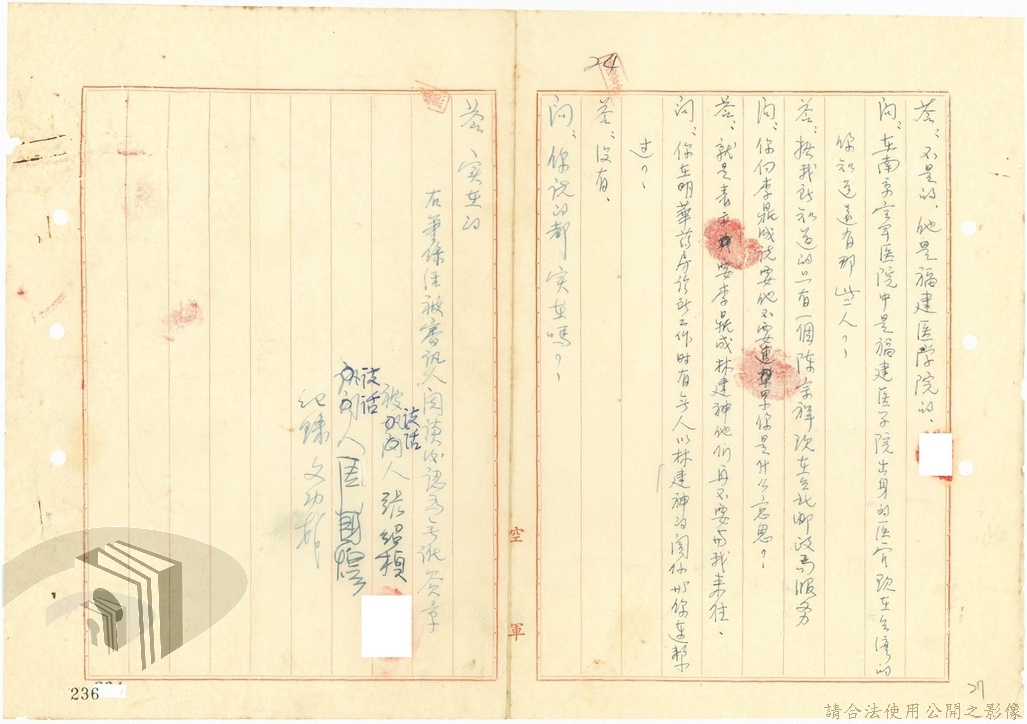 24
答：不是的、他是福建医学院的、
问：在南京空军医院中是福建医学院出身的医官现在台湾的
你知道还有那些人？
答：据我所知道的只有一個陈宗祥现在台北邮政局服务
问：你向李鼎成说要他不要连累你是什么意思？
答：就是表示要李鼎成林建神他们再不要与我来往、
问：你在明華药房诊所工作时有无人以林建神的関係与你連繫
过？
答：没有、
问：你说的都实在嗎？
答 实在的
右筆录经被審讯人阅读後認为無讹簽章
被
人 張
谈话
谈话
人 周
纪錄 文
空軍
236
27
請合法使用公開之影像